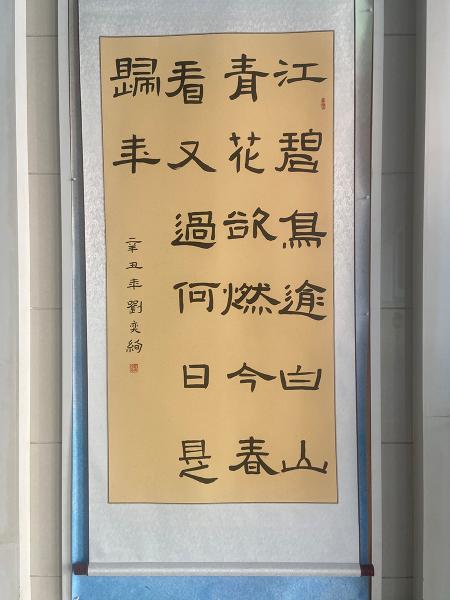 江碧鳥逾白山
青花欲燃今春
看又過何日是
歸年
辛丑年劉奕絢